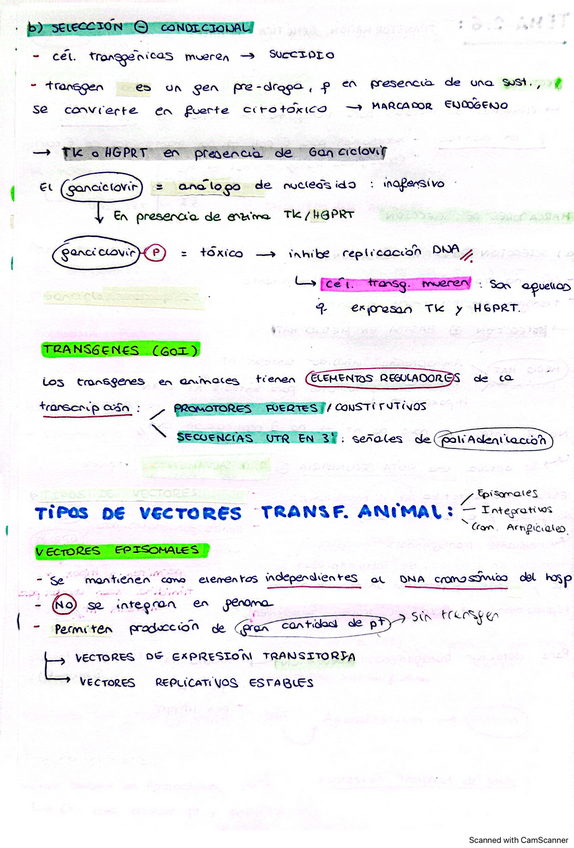 b) SELECCIÓN ⊖ CONDICIONAL
- cél. transgénicas mueren → SUICIDIO
- transgen es un gen pre-droga, q en presencia de una sust.,
se convierte en fuerte citotóxico → MARCADOR ENDÓGENO
→ TK o HGPRT en presencia de Ganciclovir
El ganciclovir = análogo de nucleósido : inofensivo
↓ En presencia de enzima TK/HGPRT
ganciclovir-P = tóxico → inhibe replicación DNA //
↳ cél. transg. mueren : son aquellas
q expresan TK y HGPRT.
TRANSGENES (GOI)
Los transgenes en animales tienen ELEMENTOS REGULADORES de la
transcripción : PROMOTORES FUERTES / CONSTITUTIVOS
SECUENCIAS UTR EN 3' : señales de poliAdenilación
TIPOS DE VECTORES TRANSF. ANIMAL : Episomales
Integrativos
Crom. Artificiales
VECTORES EPISOMALES
- Se mantienen como elementos independientes al DNA cromosómico del hosp
- NO se integran en genoma
- Permiten producción de gran cantidad de pT → sin transgen
↳ VECTORES DE EXPRESIÓN TRANSITORIA
↳ VECTORES REPLICATIVOS ESTABLES
Scanned with CamScanner